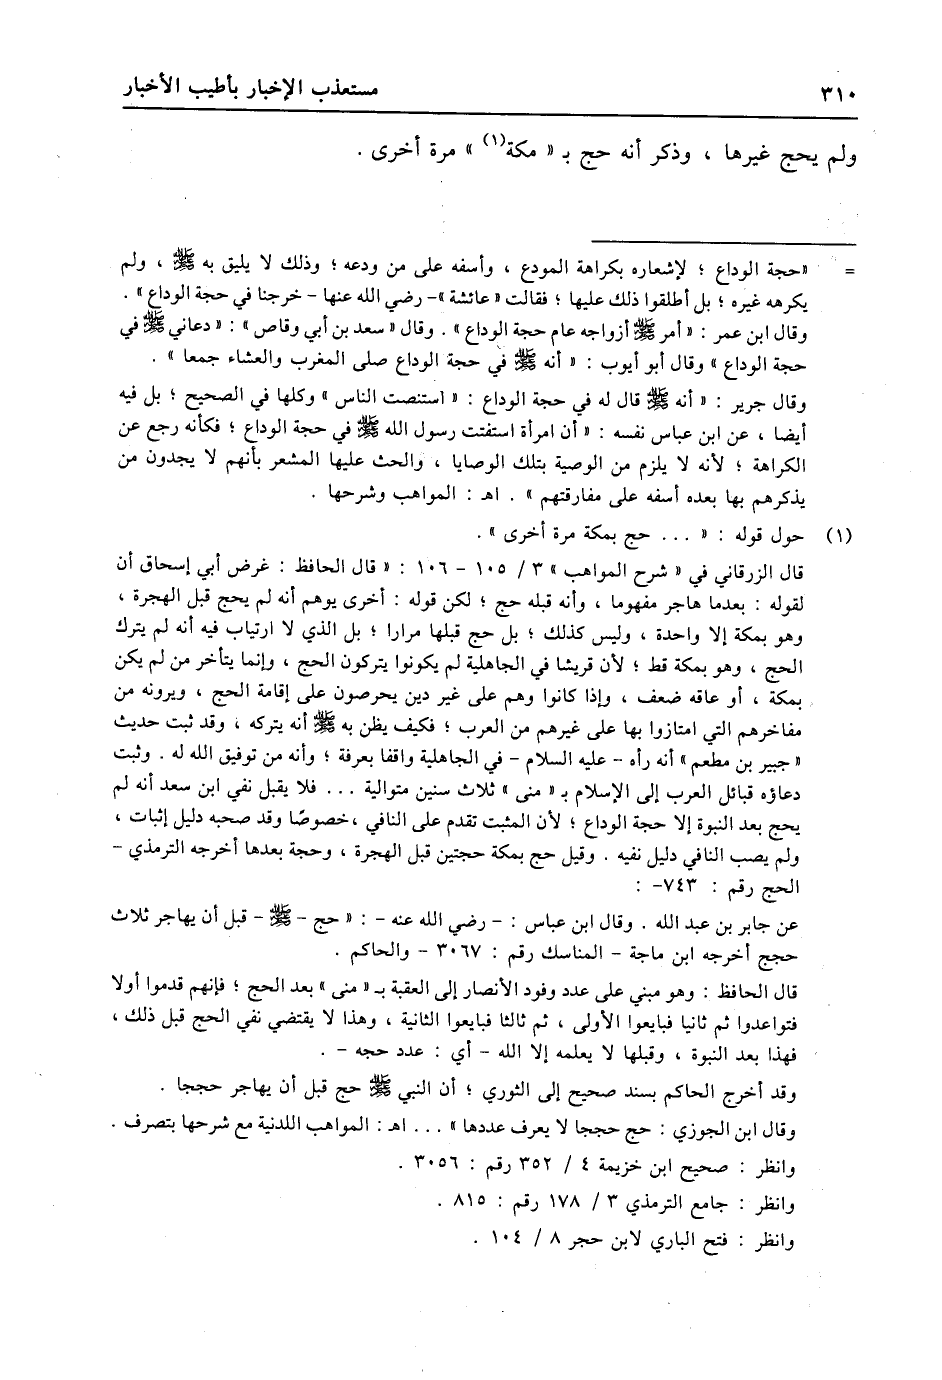 ٣١٠ مستعذب الإخبار بأطيب الأخبار
ولم يحج غيرها ، وذكر أنه حج بـ « مكة(١) » مرة أخرى .
= «حجة الوداع ؛ لإشعاره بكراهة المودع ، وأسفه على من ودعه ؛ وذلك لا يليق به ﷺ ، ولم
يكرهه غيره ؛ بل أطلقوا ذلك عليها ؛ فقالت « عائشة »- رضي الله عنها - خرجنا في حجة الوداع» .
وقال ابن عمر : « أمر ﷺ أزواجه عام حجة الوداع» . وقال « سعد بن أبي وقاص » : « دعاني ﷺ في
حجة الوداع » وقال أبو أيوب : « أنه ﷺ في حجة الوداع صلى المغرب والعشاء جمعا » .
وقال جرير : « أنه ﷺ قال له في حجة الوداع : « استنصت الناس » وكلها في الصحيح ؛ بل فيه
أيضا ، عن ابن عباس نفسه : « أن امرأة استفتت رسول الله ﷺ في حجة الوداع ؛ فكأنه رجع عن
الكراهة ؛ لأنه لا يلزم من الوصية بتلك الوصايا ، والحث عليها المشعر بأنهم لا يجدون من
يذكرهم بها بعده أسفه على مفارقتهم » . اهـ : المواهب وشرحها .
(١) حول قوله : « ... حج بمكة مرة أخرى » .
قال الزرقاني في « شرح المواهب » ٣ / ١٠٥ - ١٠٦ : « قال الحافظ : غرض أبي إسحاق أن
لقوله : بعدما هاجر مفهوما ، وأنه قبله حج ؛ لكن قوله : أخرى يوهم أنه لم يحج قبل الهجرة ،
وهو بمكة إلا واحدة ، وليس كذلك ؛ بل حج قبلها مرارا ؛ بل الذي لا ارتياب فيه أنه لم يترك
الحج ، وهو بمكة قط ؛ لأن قريشا في الجاهلية لم يكونوا يتركون الحج ، وإنما يتأخر من لم يكن
بمكة ، أو عاقه ضعف ، وإذا كانوا وهم على غير دين يحرصون على إقامة الحج ، ويرونه من
مفاخرهم التي امتازوا بها على غيرهم من العرب ؛ فكيف يظن به ﷺ أنه يتركه ، وقد ثبت حديث
« جبير بن مطعم » أنه رآه - عليه السلام - في الجاهلية واقفا بعرفة ؛ وأنه من توفيق الله له . وثبت
دعاؤه قبائل العرب إلى الإسلام بـ « منى » ثلاث سنين متوالية ... فلا يقبل نفي ابن سعد أنه لم
يحج بعد النبوة إلا حجة الوداع ؛ لأن المثبت تقدم على النافي ،خصوصًا وقد صحبه دليل إثبات ،
ولم يصب النافي دليل نفيه . وقيل حج بمكة حجتين قبل الهجرة ، وحجة بعدها أخرجه الترمذي -
الحج رقم : ٧٤٣- :
عن جابر بن عبد الله . وقال ابن عباس : - رضي الله عنه - : « حج - ﷺ - قبل أن يهاجر ثلاث
حجج أخرجه ابن ماجة - المناسك رقم : ٣٠٦٧ - والحاكم .
قال الحافظ : وهو مبني على عدد وفود الأنصار إلى العقبة بـ « منى » بعد الحج ؛ فإنهم قدموا أولا
فتواعدوا ثم ثانيا فبايعوا الأولى ، ثم ثالثا فبايعوا الثانية ، وهذا لا يقتضي نفي الحج قبل ذلك ،
فهذا بعد النبوة ، وقبلها لا يعلمه إلا الله - أي : عدد حجه - .
وقد أخرج الحاكم بسند صحيح إلى الثوري ؛ أن النبي ﷺ حج قبل أن يهاجر حججا .
وقال ابن الجوزي : حج حججا لا يعرف عددها » ... اهـ : المواهب اللدنية مع شرحها بتصرف .
وانظر : صحيح ابن خزيمة ٤ / ٣٥٢ رقم : ٣٠٥٦ .
وانظر : جامع الترمذي ٣ / ١٧٨ رقم : ٨١٥ .
وانظر : فتح الباري لابن حجر ٨ / ١٠٤ .